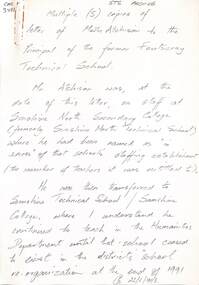 Multiple (5) copies of
letter of Mollie Atchison to the
Principal of the former Footscray
Technical School.
Ms Atchison was, at the
date of this letter, on staff at
Sunshine North Secondary College
(formerly Sunshine North Technical School)
where he had been named as "in
excess" of that schools' staffing establishment
(the number of teachers it was entitled to).
He was then transferred to
Sunshine Technical School / Sunshine
College, where I understand he
continued to teach in the Humanities
Department until that school ceased
to exist in the districts school
re-organization at the end of 1991